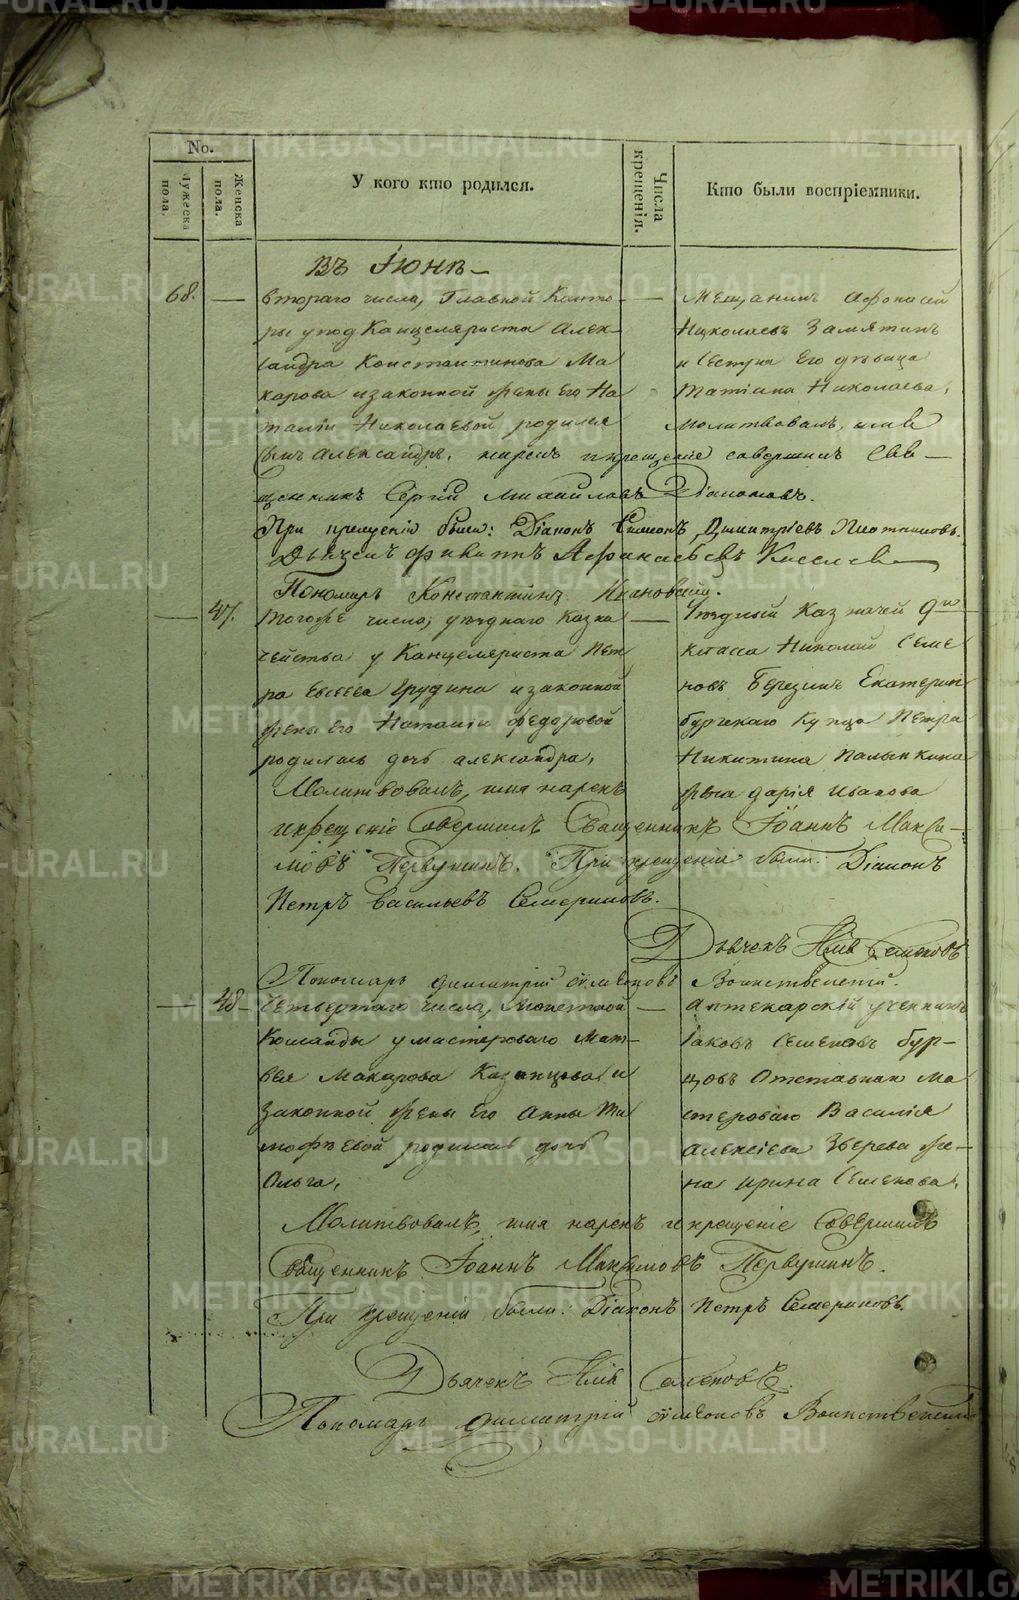 No.
Мужеска пола.
Женска пола.
У кого кто родился.
Числа крещенія.
Кто были воспріемники.
Въ Іюнѣ
68. — втораго числа, Главной Конто-
ры у под Канцеляриста Алек-
сандра Константинова Ма
карова и законной жены Его На
таліи Николаевой родился
сынъ Александръ,
— Мещанинъ Афонасей
Николаевъ Замятинъ
и Сестра Его дѣвица
Татіана Николаева,
Молитвовалъ, имя
нарекъ и крещеніе совершилъ Свя-
щенникъ Сергій Михайловъ Діаконовъ.
При крещеніи были: Діаконъ Симеонъ Димитріевъ Плотниковъ.
Дьячекъ Филиппъ Афанасьевъ Киселевъ
Пономарь Константинъ Ивановскій.
— 47. тогоже числа, уѣзднаго Казна
чейства у Канцеляриста Пет
ра Евсеева Грудина и законной
жены его Наталіи Федоровой
родилась дочь александра,
— Уѣздный Казначей 9го
класса Николай Семе
новъ Березинъ Екатерин
бургскаго Купца Петра
Никитина Палынкина
жена дарія Иванова
Молитвовалъ, имя нарекъ
и крещеніе Совершилъ Священникъ Іоаннъ Макси-
мовъ Первушинъ. При крещеніи были: Діаконъ
Петръ Васильевъ Семериковъ.
Дьячекъ Семеновъ
Пономарь димитрій Симеоновъ Воинственскій.
— 48 — Четвертаго числа, Монетной
Команды у мастероваго Мат-
вея Макарова Казанцова и
Законной жены Его Анны Ти
мофѣевой родилась дочь
Ольга,
— Аптекарскій ученикъ
Іаковъ Семеновъ бур-
цовъ Отставнаго Ма
стероваго Василія
Алексіева Зверева же-
на ирина Семенова,
Молитвовалъ, имя нарекъ и крещеніе Совершилъ
Священникъ Іоаннъ Максимовъ Первушинъ.
При крещеніи были: Діаконъ Петръ Семериковъ
Дьячекъ Семеновъ.
Пономарь димитрій Симеоновъ Воинственскій
METRIKI.GASO-URAL.RU